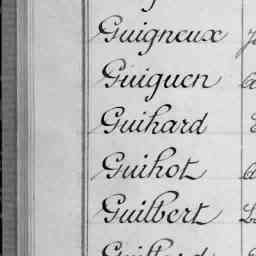 Guigneux
Guiguen
Guihard
Guihot
Guilbert